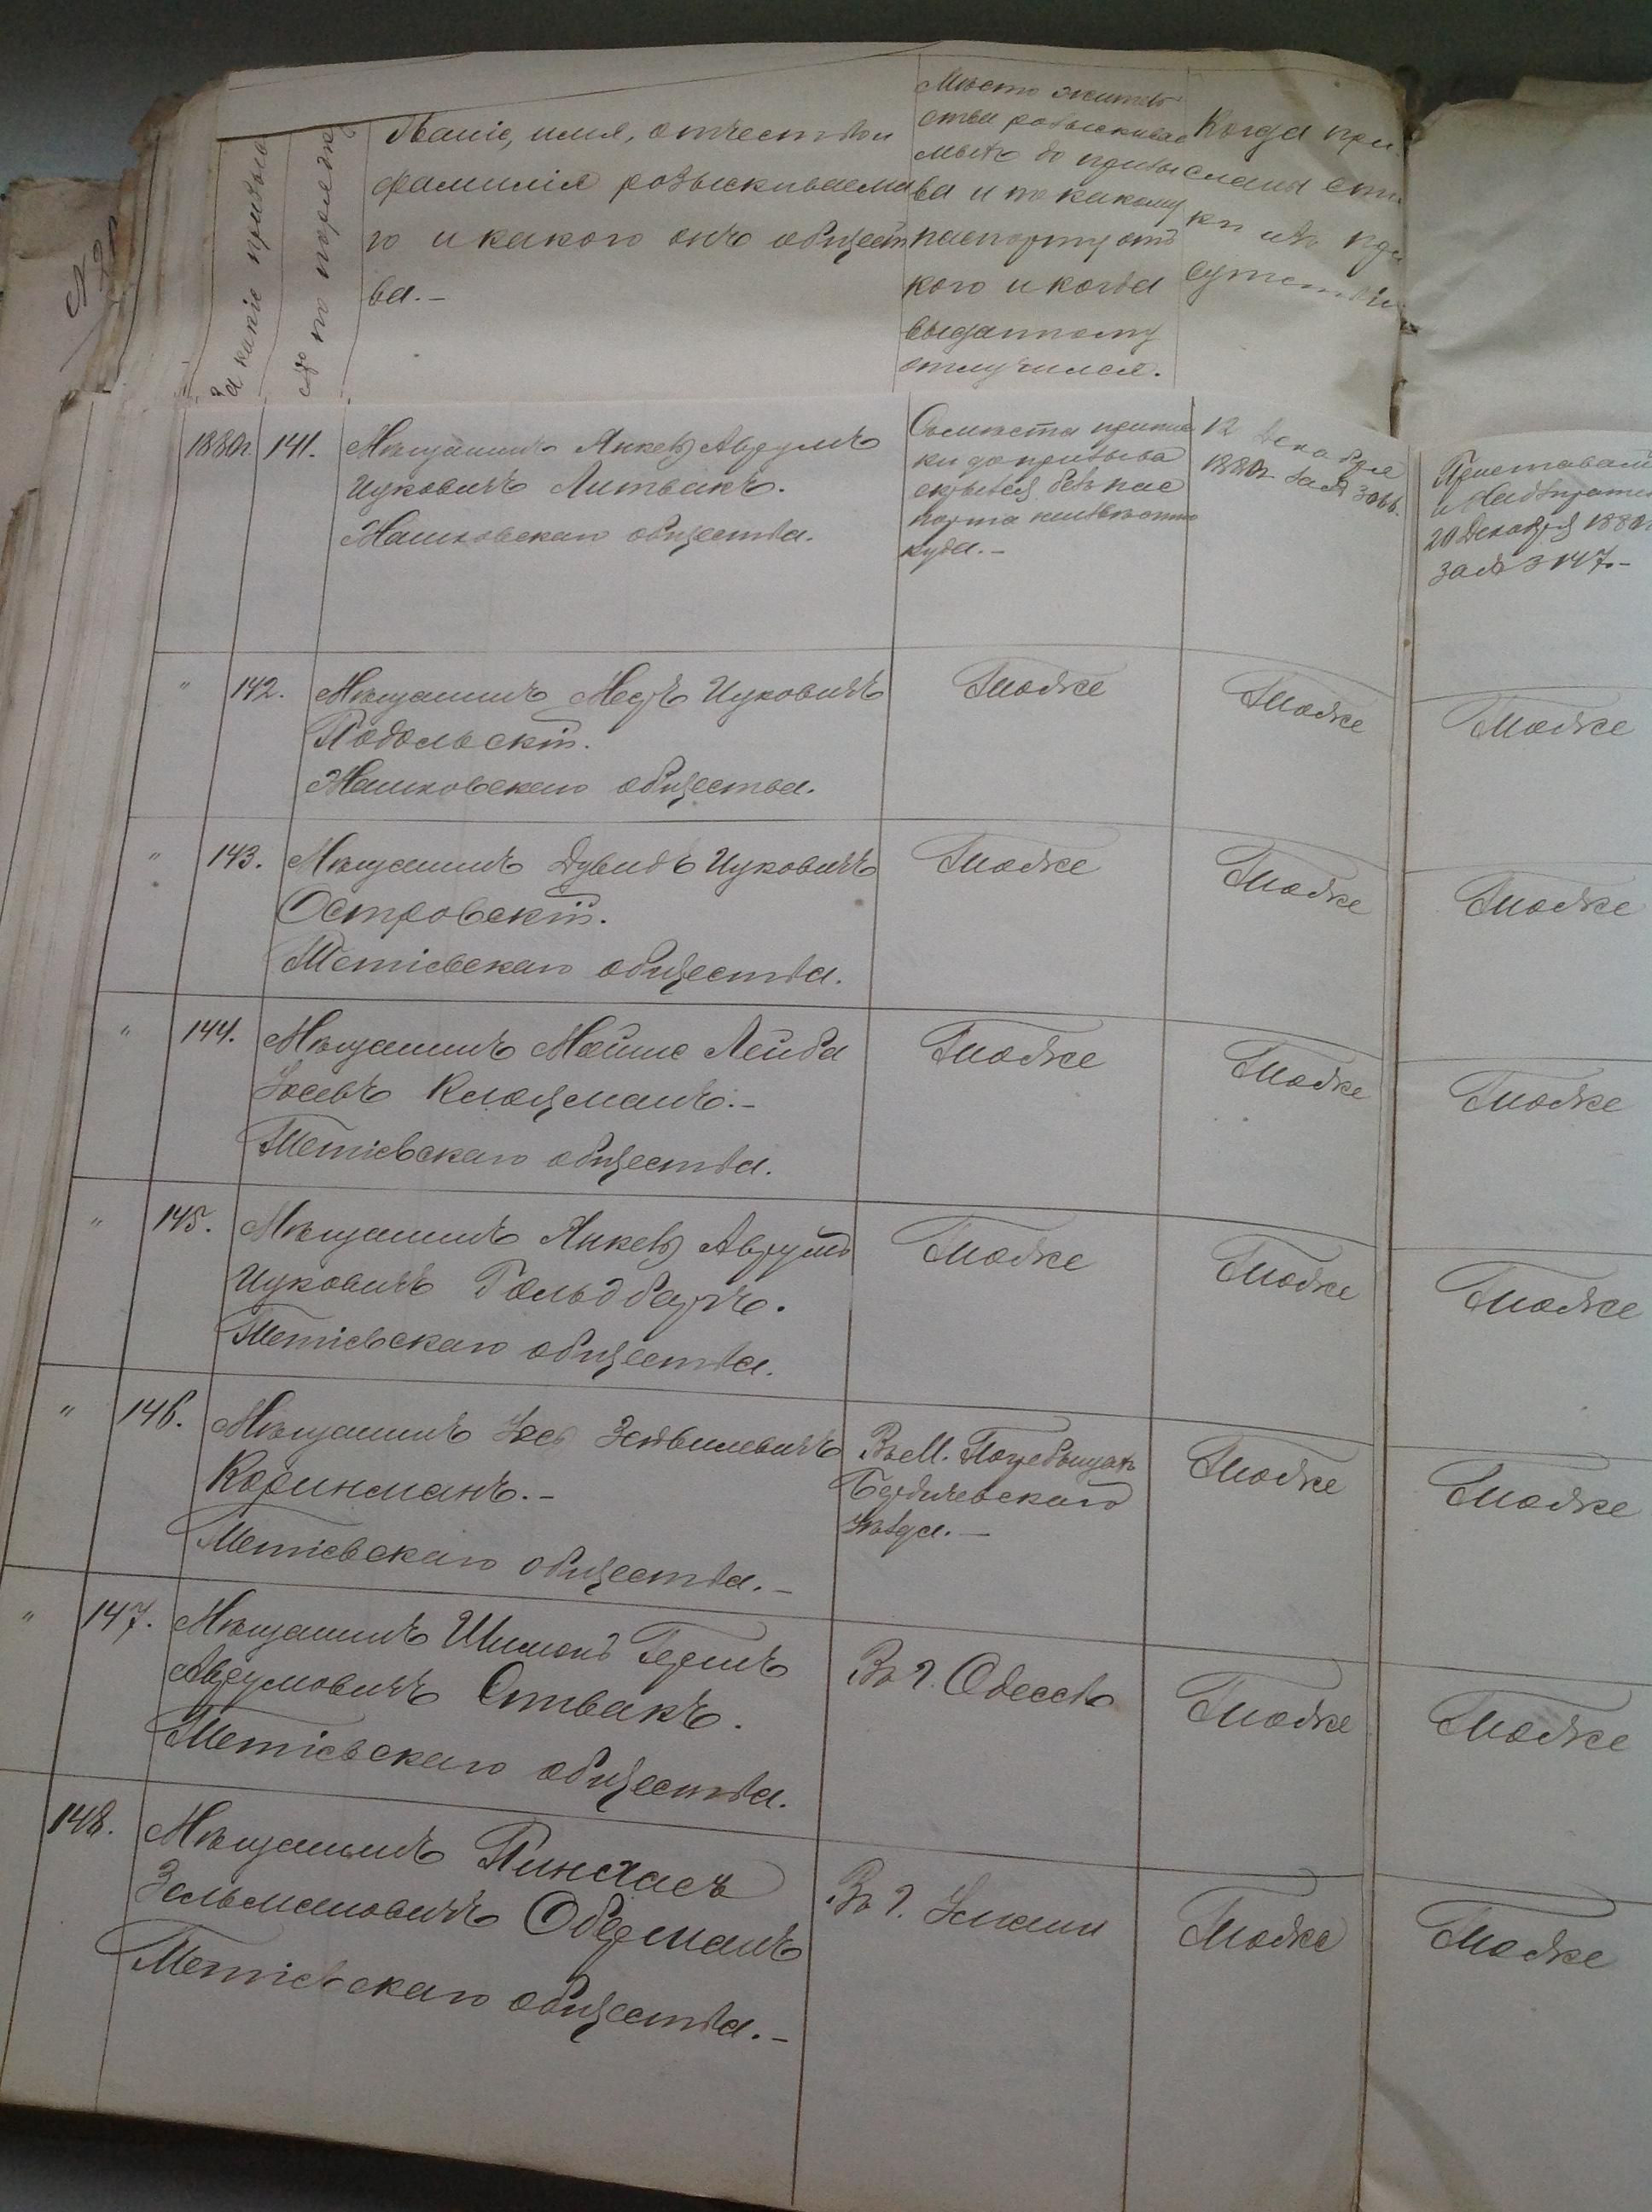 За какіе призыва
№ по порядку
Званіе, имя, отчество и
фамилія розыскиваема
го и какого онъ общест
ва.-
Мѣсто житель
ства розыскива
мыхъ до призы
ва и по какому
паспорту отъ
кого и когда
выданному
отлучился.
Когда при
сланы спи
ки изъ при
сутствія
1880г. 141. Мѣщанинъ Янкель Аврумъ
Ицковичъ Литвакъ.
Жашковскаго общества.
Съ мѣста припис
ки до призыва
скрылся безъ пас
порта неизвѣстно
куда.-
12 Декабря
1880г. за №
Приставамъ
20 Декабря 1880г
за № 3147.-
" 142. Мѣщанинъ Меръ Ицковичъ
Подольскій.
Жашковскаго общества.
Тоже
Тоже
Тоже
" 143. Мѣщанинъ Дувидъ Ицковичъ
Островскій.
Тетіевскаго общества.
Тоже
Тоже
Тоже
" 144. Мѣщанинъ Мойше Лейба
Іосевъ Клоцманъ.-
Тетіевскаго общества.
Тоже
Тоже
Тоже
" 145. Мѣщанинъ Янкель Аврумъ
Ицковичъ Гольдбаръ.
Тетіевскаго общества.
Тоже
Тоже
Тоже
" 146. Мѣщанинъ Іос Зейвилевичъ
Коринманъ.-
Тетіевскаго общества.-
Въ М. Погребищахъ
Бердичевскаго
уѣзда.-
Тоже
Тоже
" 147. Мѣщанинъ Шимонъ Гершъ
Аврумовичъ Спивакъ.
Тетіевскаго общества.
Въ г. Одессѣ
Тоже
Тоже
148. Мѣщанинъ Пинхасъ
Зельмановичъ Оберманъ
Тетіевскаго общества.-
Въ г. Умани
Тоже
Тоже